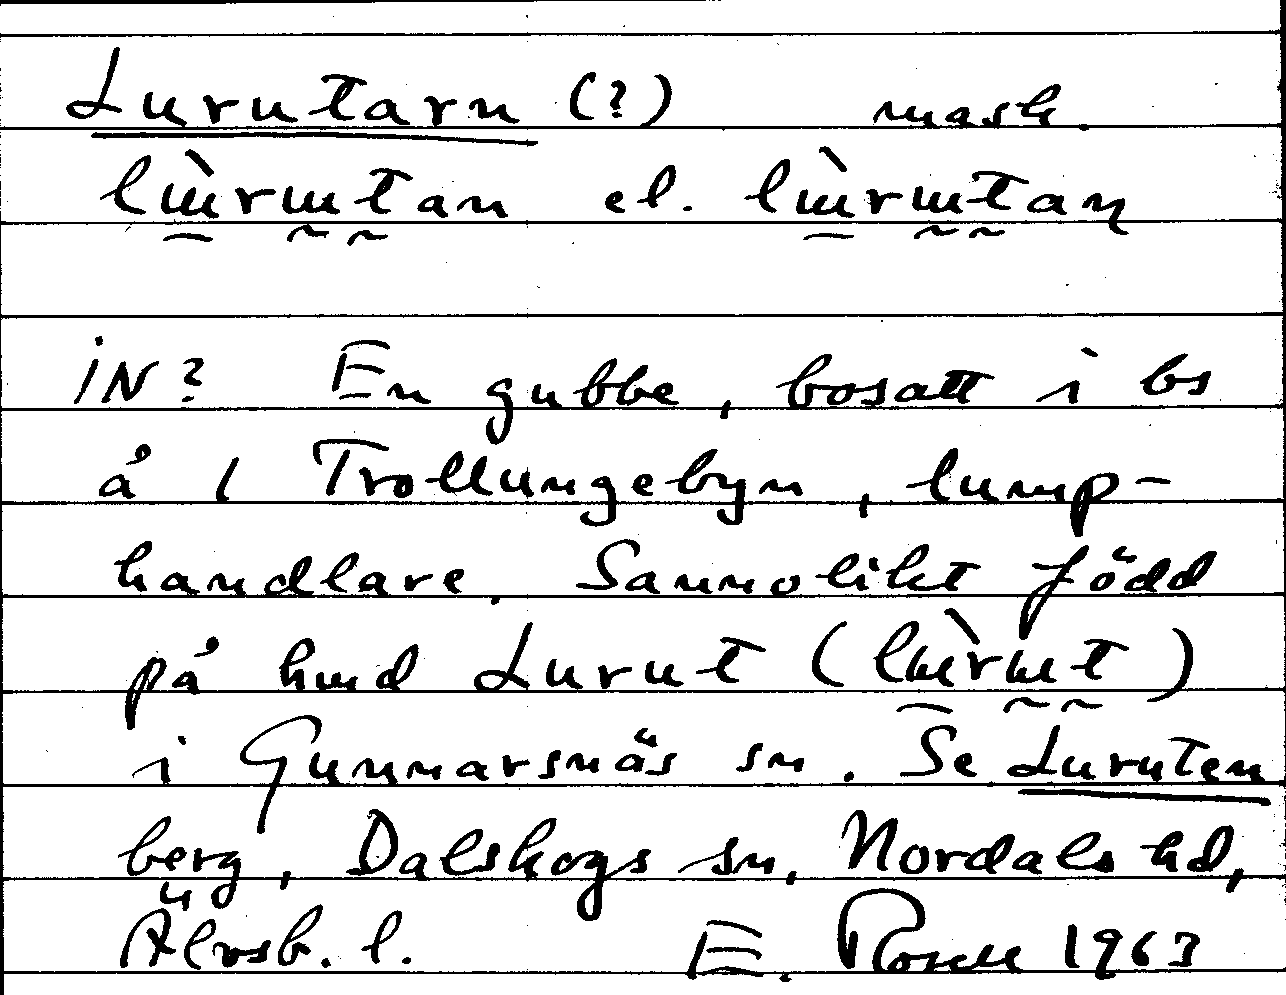 Lurutarn (?) mask.
lɯ̀rɯtan el. lɯ̀rɯtaɳ
IN? En gubbe, bosatt i bs
å 1 Trollungebyn, lump-
handlare. Sannolikt född
på hmd Lurut (lɯ̀rɯt)
i Gunnarsnäs sn. Se Luruten
berg, Dalskogs sn, Nordals hd,
Älvsb. l. E. 1963